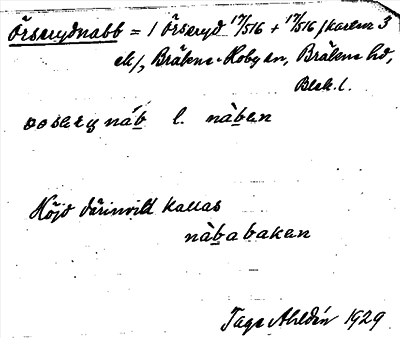 Örserydnabb = 1 Örseryd 17/516 + 17/516 /kartan 3
ek/, Bräkne-Hoby sn, Bräkne hd,
Blek. l.
nàb l. nàban
Höjd därinvid kallas
nàbabakan
Tage Ahldén 1929